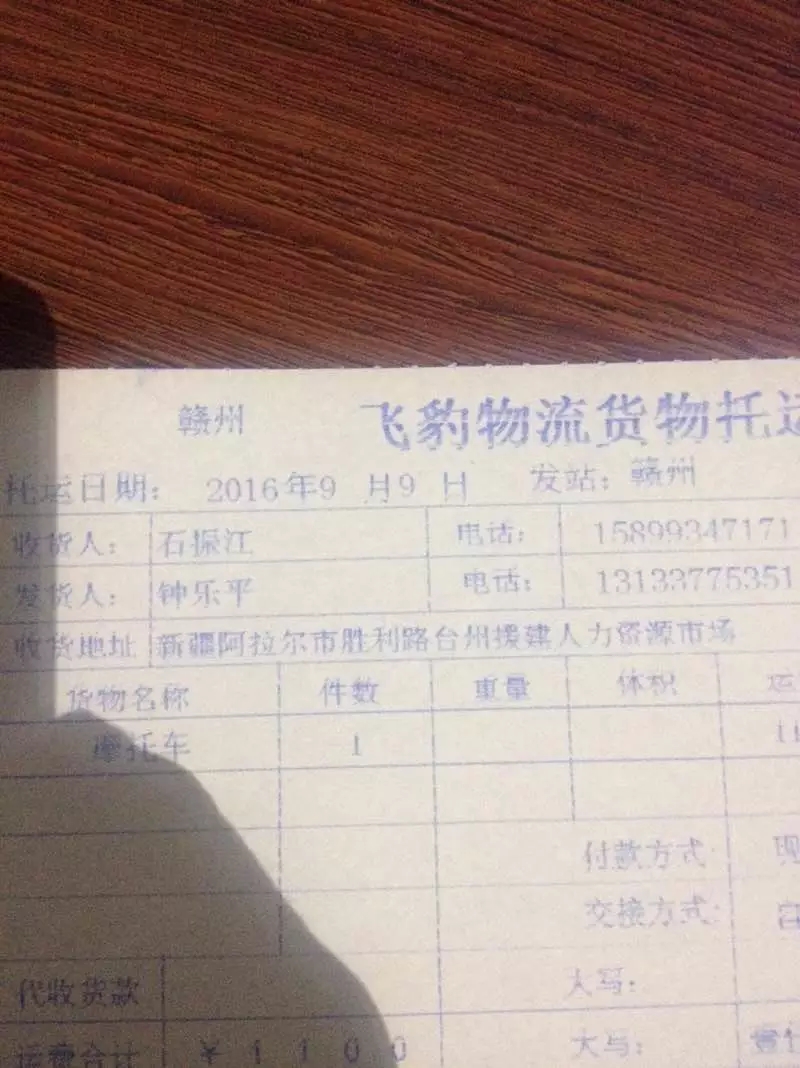 赣州 飞豹物流货物托运
托运日期： 2016年9 月9 日 发站：赣州
收货人： 石振江 电话： 15899347171
发货人： 钟乐平 电话： 13133775351
收货地址 新疆阿拉尔市胜利路台州援建人力资源市场
货物名称 件数 重量 体积 运
摩托车 1 11
付款方式： 现
交接方式：
代收货款 大写：
运费合计 ￥ 1 1 0 0 大写： 壹